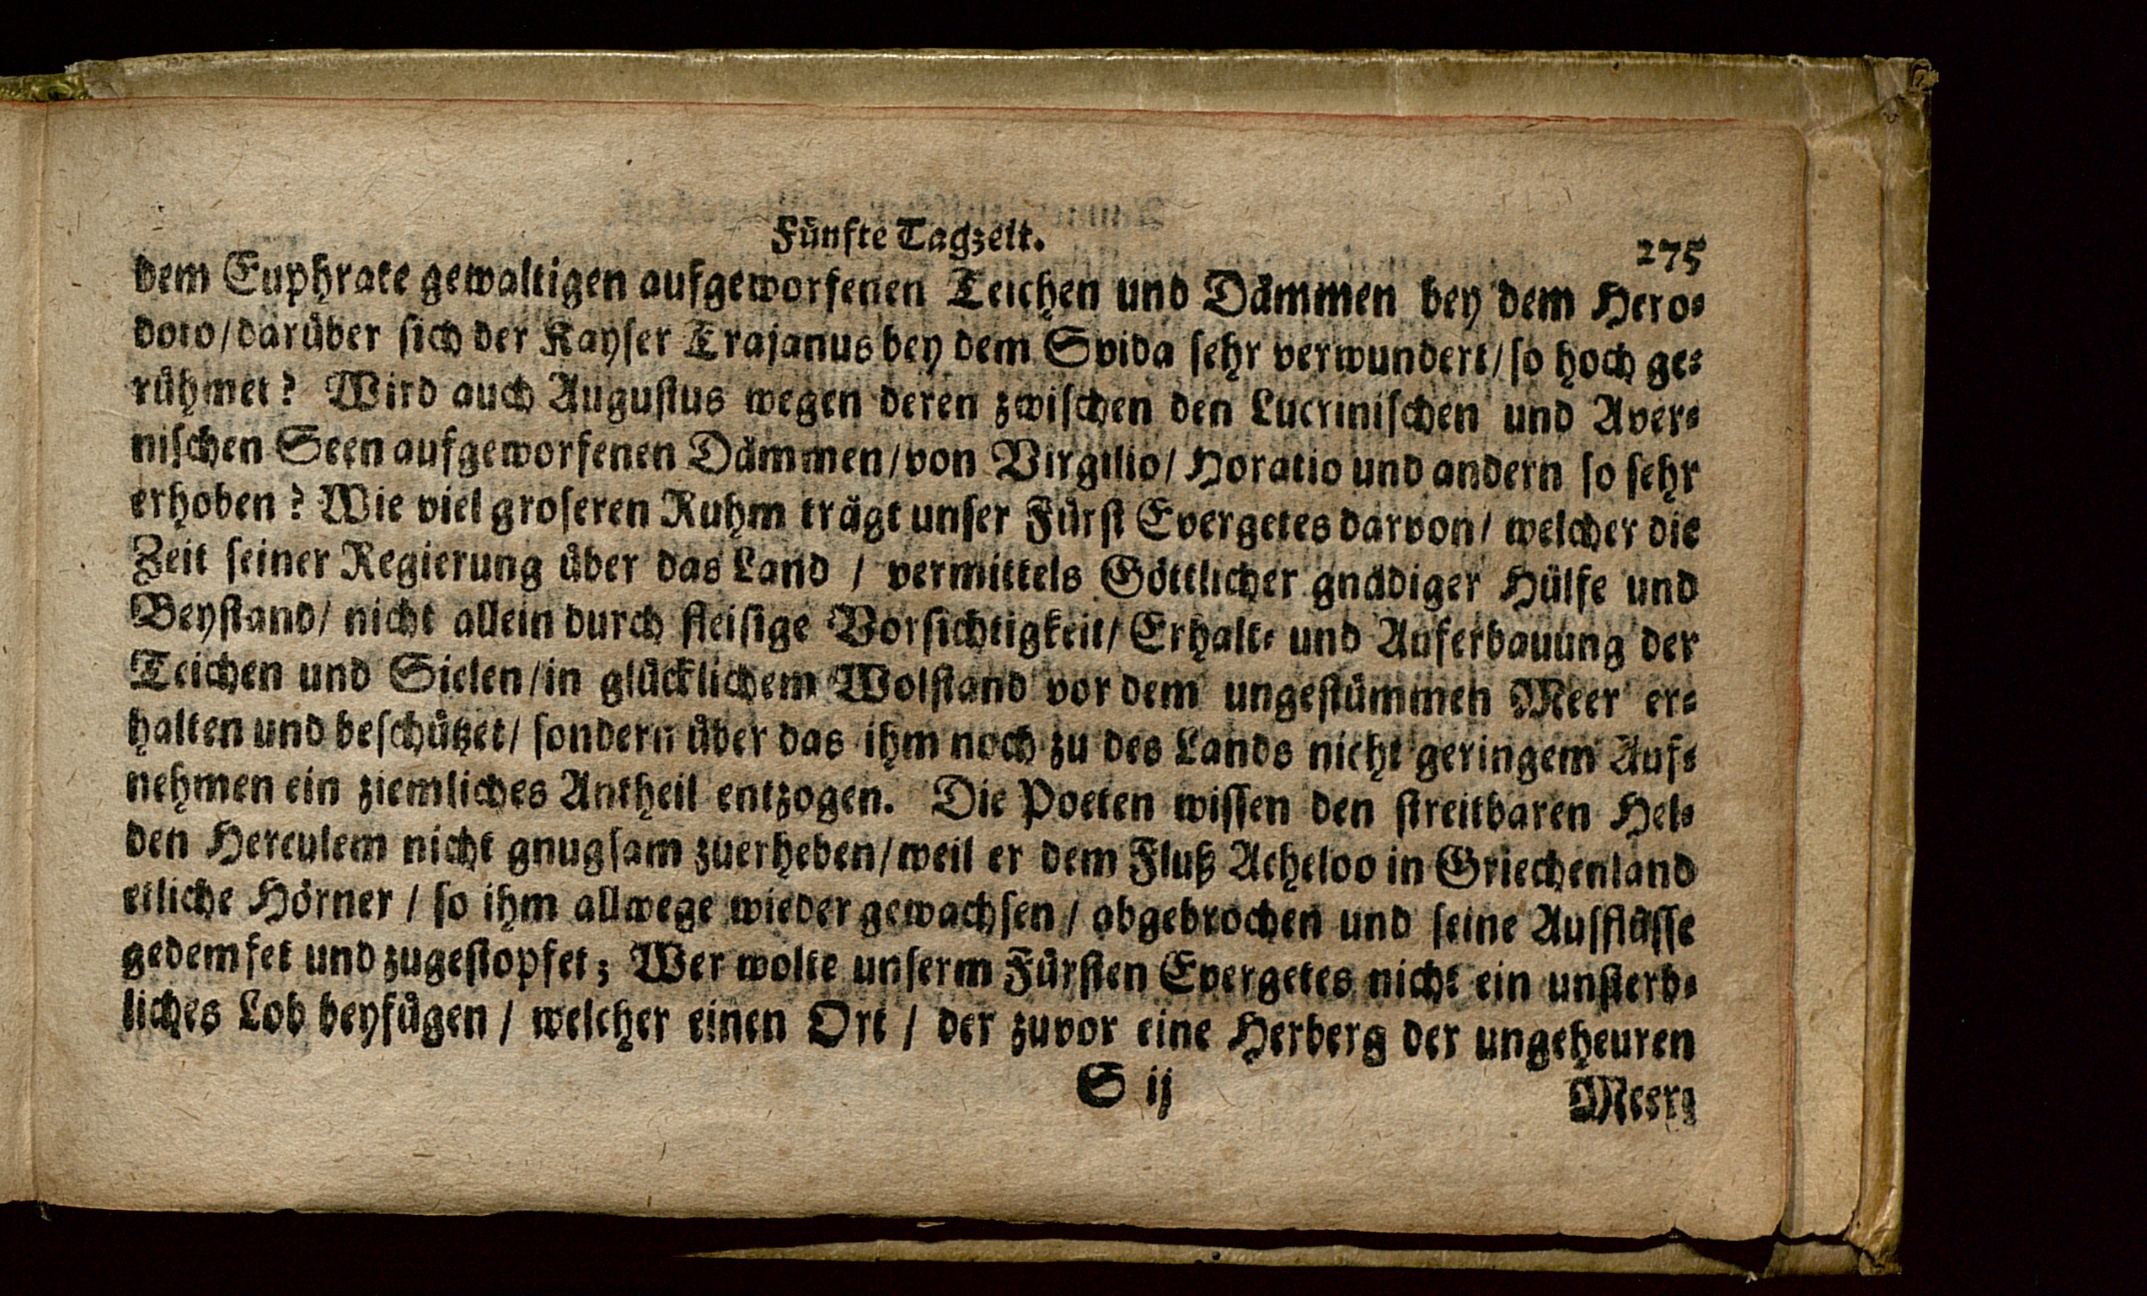 Fünfte Tagzeit.
275
dem Euphrate gewaltigen aufgeworfenen Teichen und Dämmen bey dem Hero-
doto/darüber sich der Kayser Trajanus bey dem Svida sehr verwundert/so hoch ge-
rühmet? Wird auch Augustus wegen deren zwischen den Lucrinischen und Aver-
nischen Seen aufgeworfenen Dämmen/von Virgilio/ Horatio und andern so sehr
erhoben? Wie viel groseren Ruhm trägt unser Fürst Evergetes darvon/ welcher die
Zeit seiner Regierung über das Land / vermittels Göttlicher gnädiger Hülfe und
Beystand/ nicht allein durch fleisige Vorsichtigkeit/ Erhalt- und Auferbauung der
Teichen und Sielen/in glücklichem Wolstand vor dem ungestümmen Meer er-
halten und beschützet/ sondern über das ihm noch zu des Lands nicht geringem Auf-
nehmen ein ziemliches Antheil entzogen. Die Poeten wissen den streitbaren Hel-
den Herculem nicht gnugsam zuerheben/weil er dem Fluß Acheloo in Griechenland
etliche Hörner / so ihm allwege wieder gewachsen / abgebrochen und seine Ausflüsse
gedemfet und zugestopfet; Wer wolte unserm Fürsten Evergetes nicht ein unsterb-
liches Lob beyfügen / welcher einen Ort / der zuvor eine Herberg der ungeheuren
S ij
Meer-